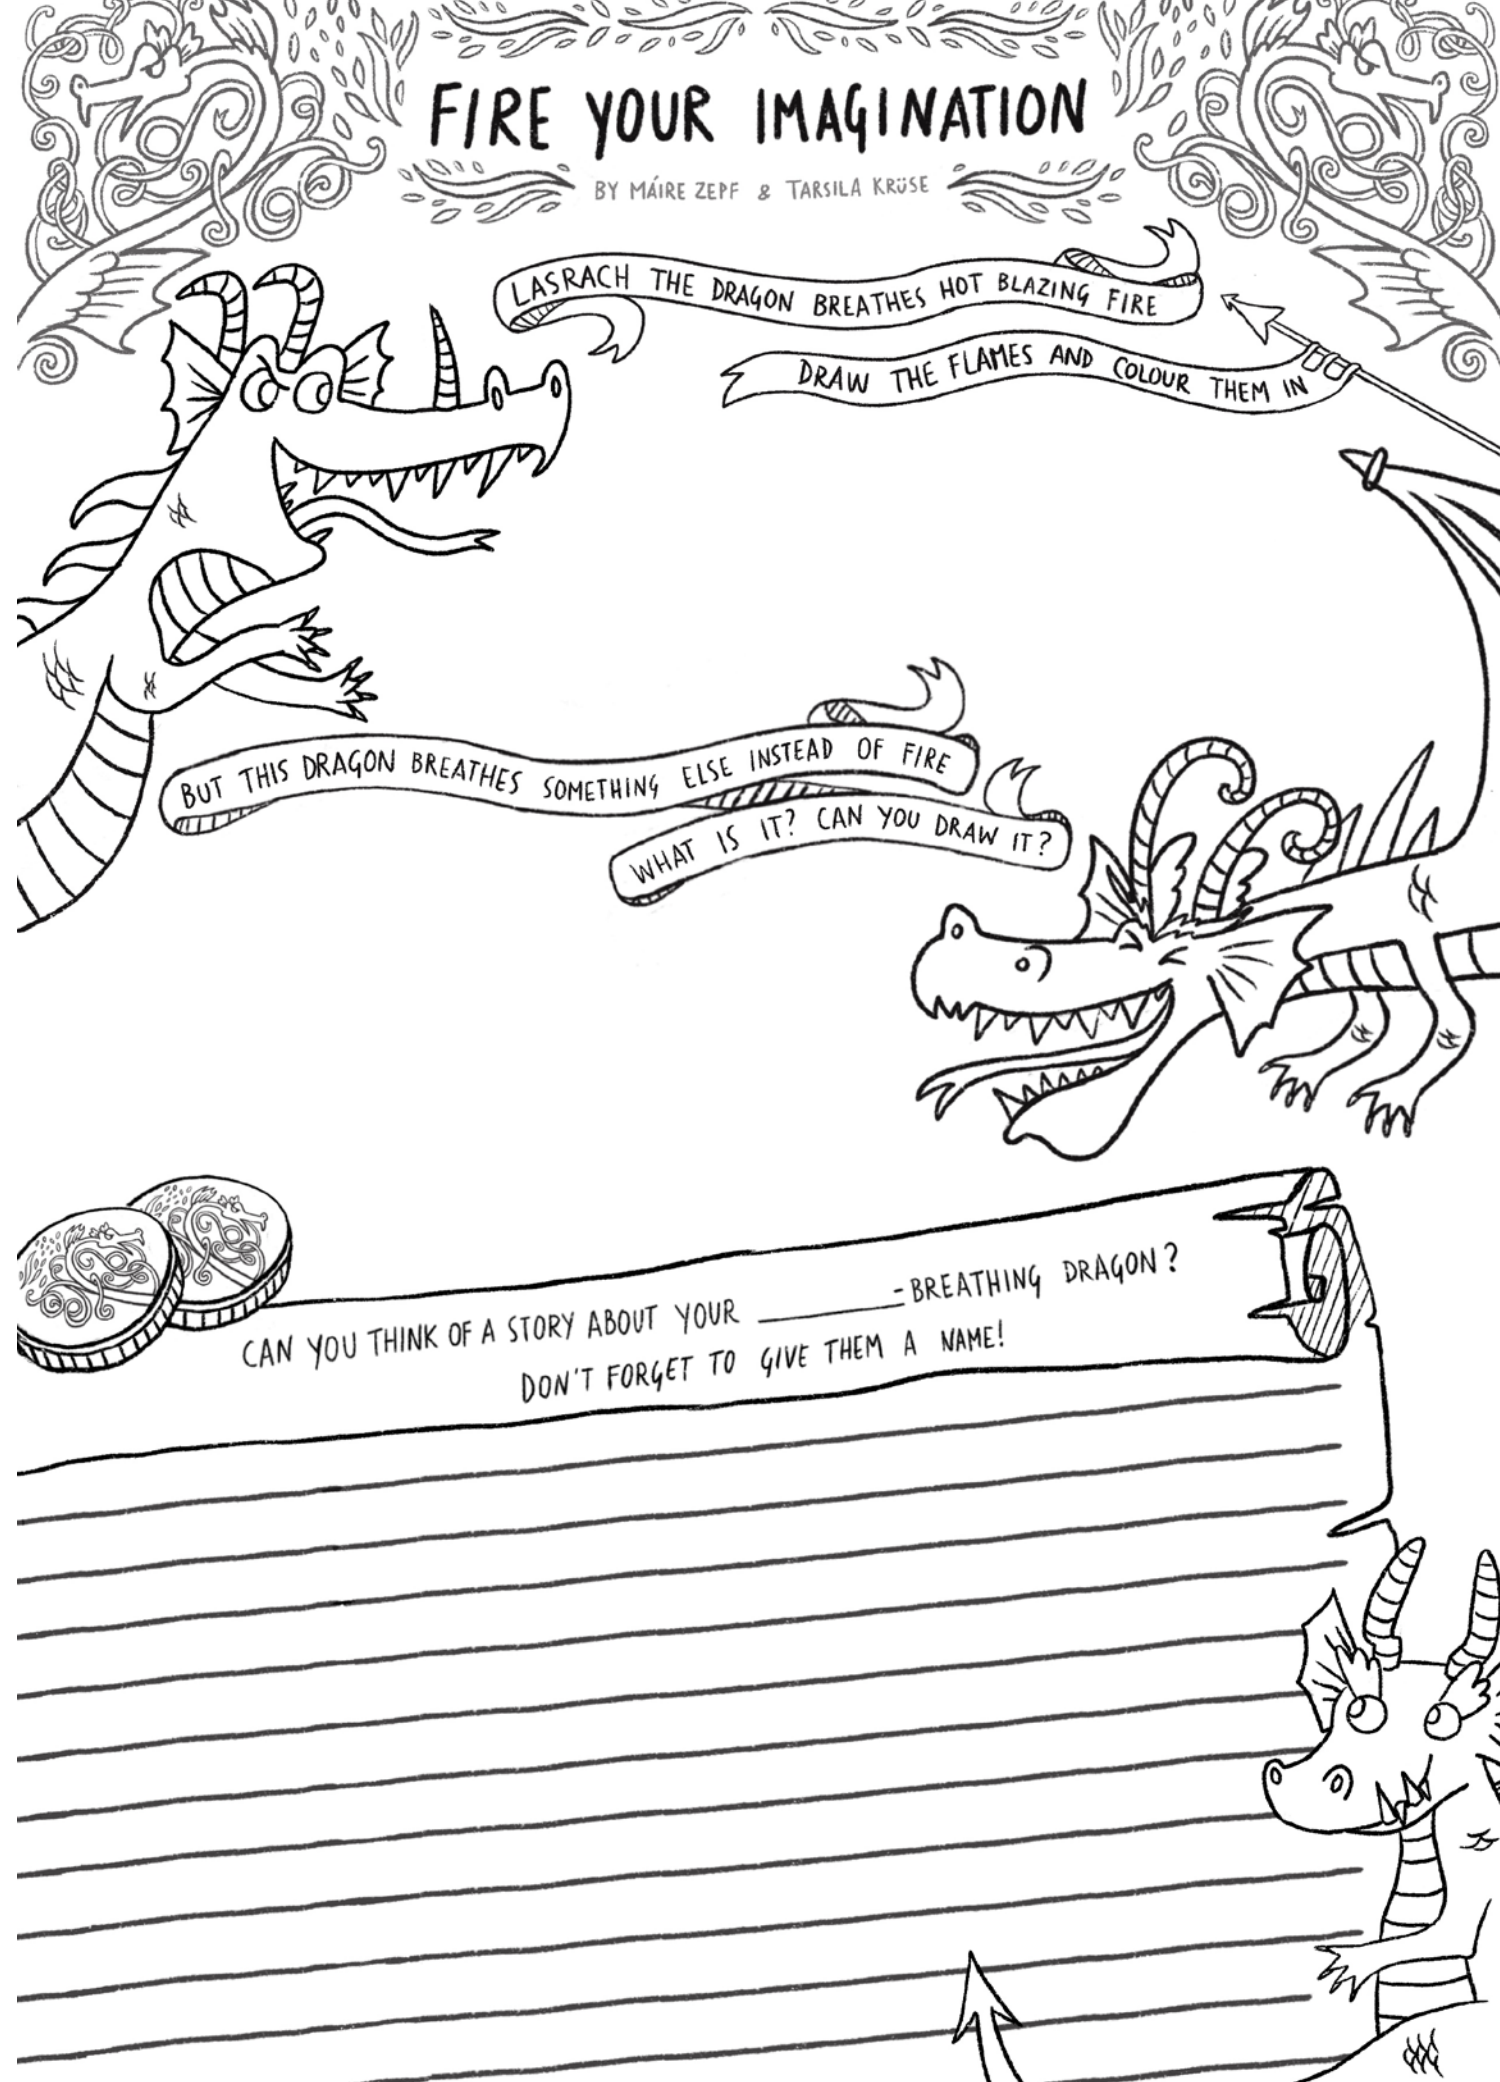 FIRE YOUR IMAGINATION
BY MÁIRE ZEPF & TARSILA KRÜSE
LASRACH THE DRAGON BREATHES HOT BLAZING FIRE
DRAW THE FLAMES AND COLOUR THEM IN
BUT THIS DRAGON BREATHES SOMETHING ELSE INSTEAD OF FIRE
WHAT IS IT? CAN YOU DRAW IT?
CAN YOU THINK OF A STORY ABOUT YOUR ________-BREATHING DRAGON?
DON'T FORGET TO GIVE THEM A NAME!